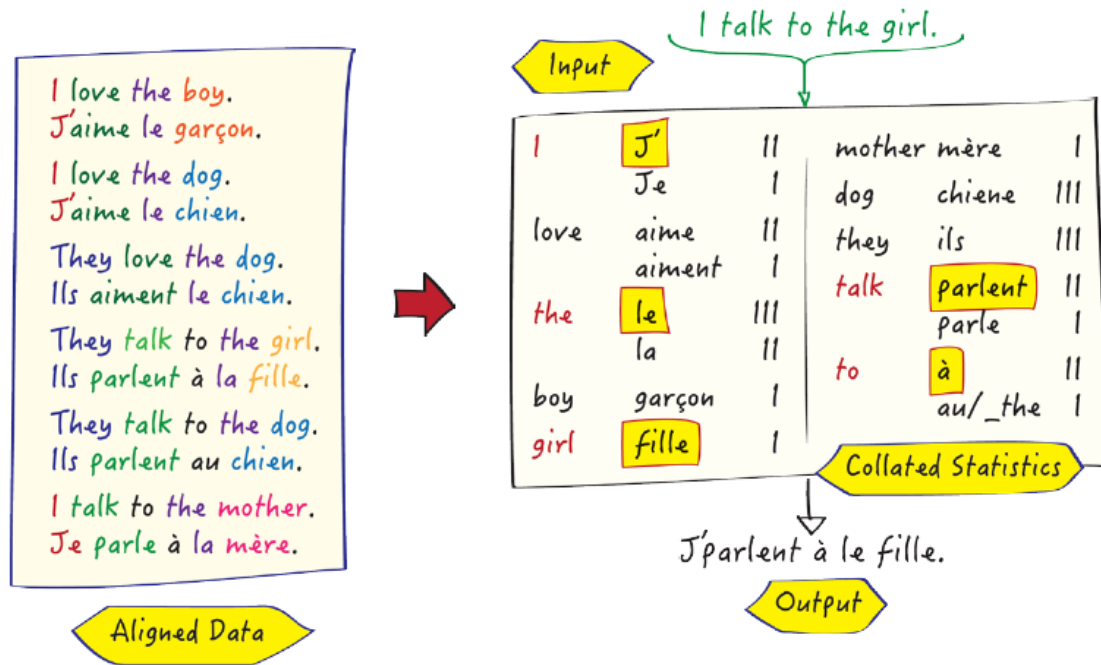 I talk to the girl.
Input
I love the boy.
J'aime le garçon.
I love the dog.
J'aime le chien.
They love the dog.
Ils aiment le chien.
They talk to the girl.
Ils parlent à la fille.
They talk to the dog.
Ils parlent au chien.
I talk to the mother.
Je parle à la mère.
Aligned Data
I J' II
Je I
love aime II
aiment I
the le III
la II
boy garçon I
girl fille I
mother mère I
dog chiene III
they ils III
talk parlent II
parle I
to à II
au/_the I
Collated Statistics
J'parlent à le fille.
Output